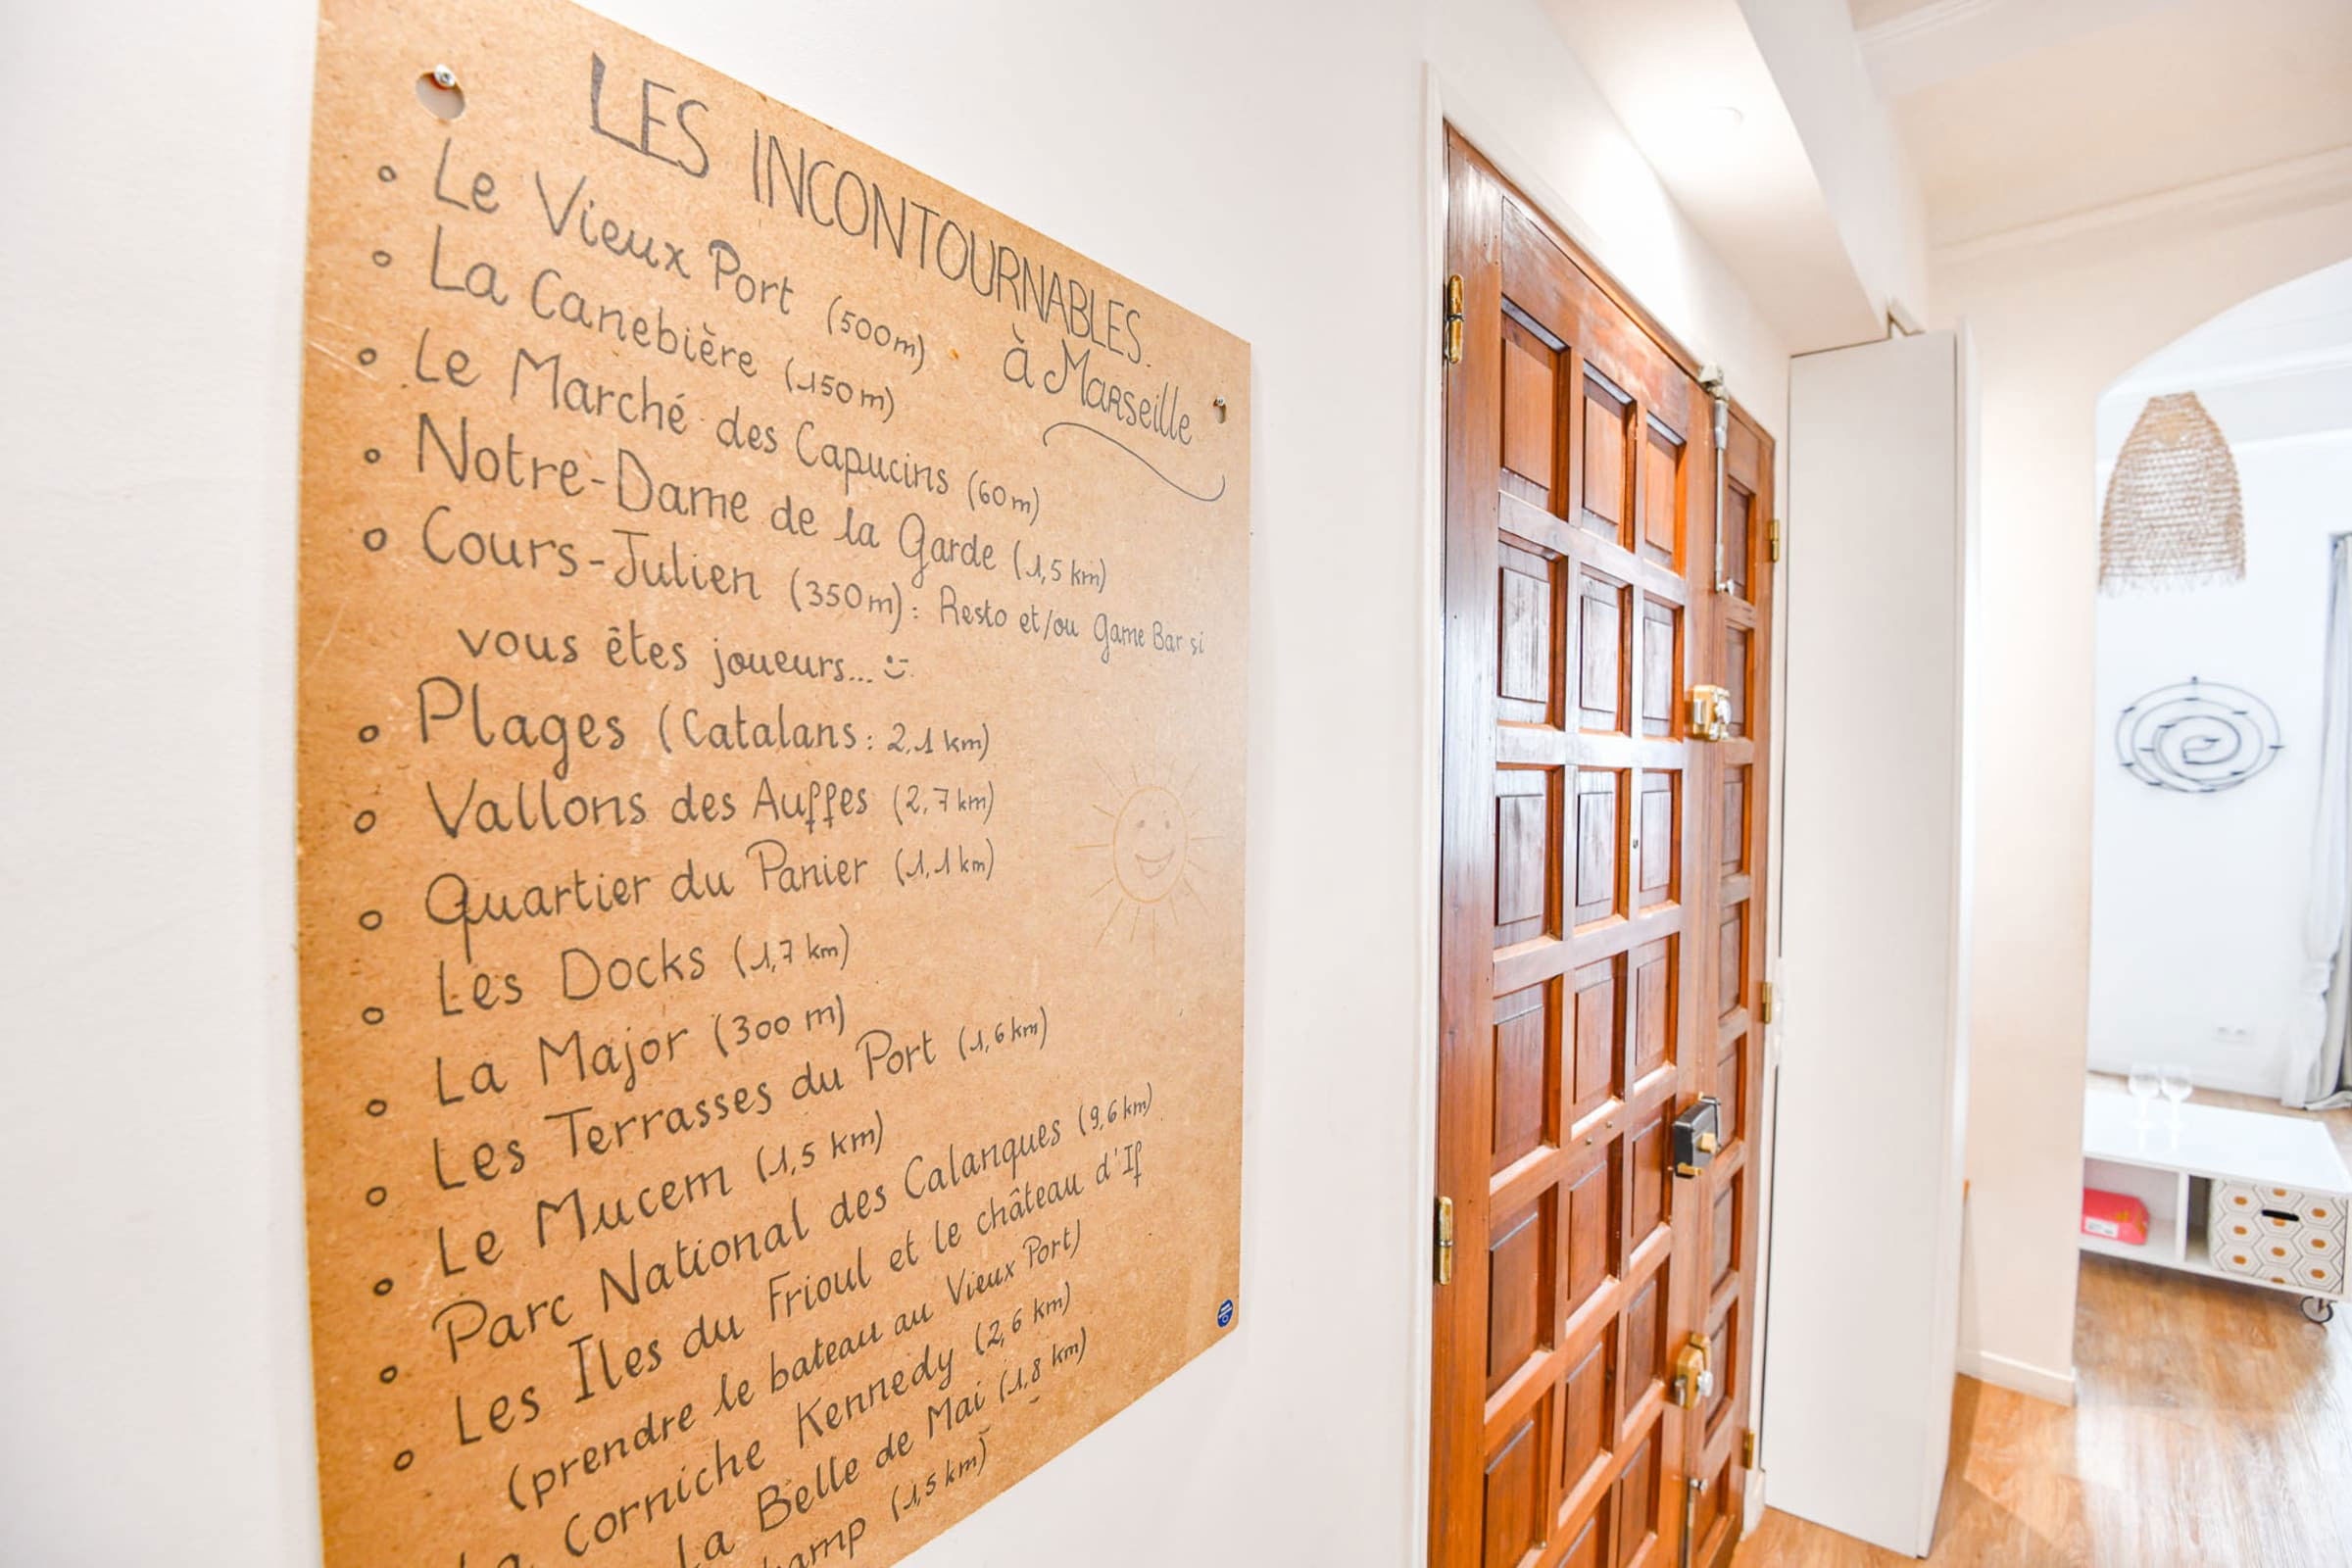 LES INCONTOURNABLES
à Marseille
Le Vieux Port (500m)
La Canebière (150m)
Le Marché des Capucins (60m)
Notre-Dame de la Garde (1,5 km)
Cours-Julien (350m): Resto et/ou Game Bar si
vous êtes joueurs...
Plages (Catalans: 2,1 km)
Vallons des Auffes (2,7 km)
Quartier du Panier (1,1 km)
Les Docks (1,7 km)
La Major (300 m)
Les Terrasses du Port (1,6 km)
Le Mucem (1,5 km)
Parc National des Calanques (9,6 km)
Les Iles du Frioul et le château d'If
(prendre le bateau au Vieux Port)
Corniche Kennedy (2,6 km)
La Belle de Mai (1,8 km)
(1,5 km)